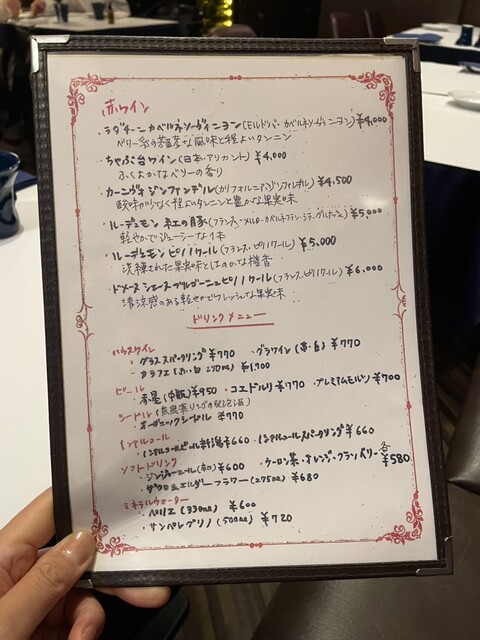 赤ワイン
・ラダチーニ カベルネソーヴィニヨン(モルドバ・カベルネソーヴィニヨン) ¥4,000
ベリー系の 風味と程よいタンニン
・ちゃぶ台ワイン(日本・アリカント) ¥4,000
ふくよかなベリーの香り
・カーニヴォ ジンファンデル(カリフォルニア・ジンファンデル) ¥4,500
酸味が少なく程よいタンニンと豊かな果実味
・ルーデュモン 紅の豚(フランス・メルロー・カベルネフラン・シラー・グルナッシュ) ¥5,000
軽やかでジューシーな1本
・ルーデュモン ピノノワール(フランス・ピノノワール) ¥5,000
洗練された果実味とほのかな樽香
・ドメーヌ シェーヌ ブルゴーニュ ピノノワール(フランス・ピノノワール) ¥6,000
清涼感のある軽やかでフレッシュな果実味
ドリンクメニュー
ハウスワイン
・グラススパークリング ¥770 ・グラスワイン(赤・白) ¥770
・カラフェ(赤・白 270ml) ¥1,700
ビール
・赤星(中瓶) ¥950 ・コエドルリ ¥770 ・プレミアムモルツ ¥700
シードル(無農薬リンゴの発泡酒)
・オーガニックシードル ¥770
ノンアルコール
・ノンアルコールビール ¥660 ・ノンアルコールスパークリング ¥660
ソフトドリンク
・ジンジャーエール(辛口) ¥600 ・ウーロン茶・オレンジ・クランベリー 各¥580
・ザクロ&エルダーフラワー(275ml) ¥680
ミネラルウォーター
・ペリエ(330ml) ¥600
・サンペレグリノ(500ml) ¥720